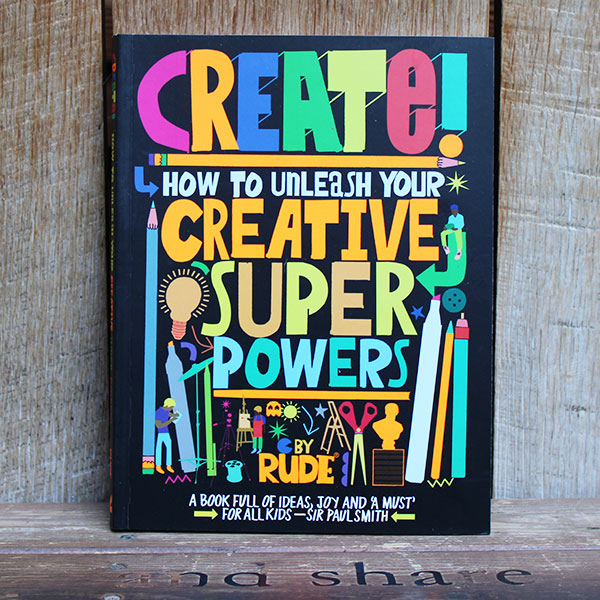 CREATE!
HOW TO UNLEASH YOUR
CREATIVE
SUPER
POWERS
BY
RUDE
A BOOK FULL OF IDEAS, JOY AND 'A MUST'
FOR ALL KIDS — SIR PAUL SMITH
and share